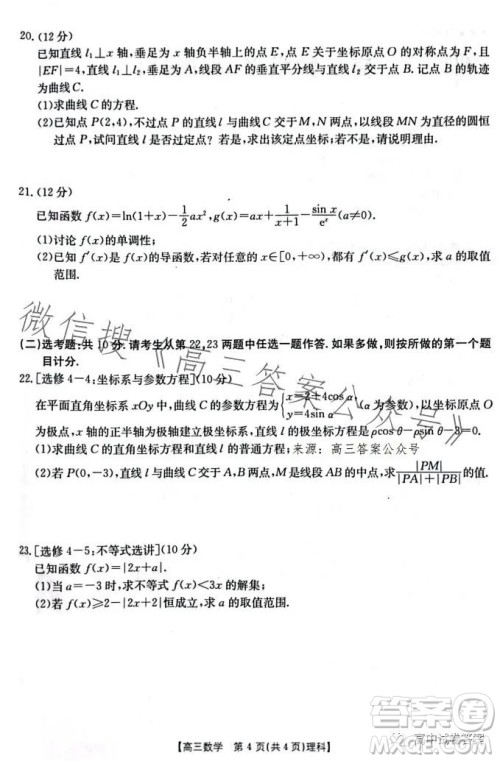 20.(12分)
已知直线 l₁⊥x 轴,垂足为 x 轴负半轴上的点 E,点 E 关于坐标原点 O 的对称点为 F,且
|EF|=4,直线 l₂⊥l₁,垂足为 A,线段 AF 的垂直平分线与直线 l₂ 交于点 B.记点 B 的轨迹
为曲线 C.
(1)求曲线 C 的方程.
(2)已知点 P(2,4),不过点 P 的直线 l 与曲线 C 交于 M,N 两点,以线段 MN 为直径的圆恒
过点 P,试问直线 l 是否过定点?若是,求出该定点坐标;若不是,请说明理由.
21.(12分)
已知函数 f(x)=ln(1+x)-1/2ax²,g(x)=ax+1/(x+1)-sin x/eˣ(a>0).
(1)讨论 f(x)的单调性;
(2)已知 f′(x)是 f(x)的导函数,若对任意的 x∈[0,+∞),都有 f′(x)≤g(x),求 a 的取值
范围.
(二)选考题:共 10 分.请考生从第 22,23 两题中任选一题作答.如果多做,则按所做的第一个题
目计分.
22.[选修 4-4:坐标系与参数方程](10分)
在平面直角坐标系 xOy 中,曲线 C 的参数方程为{x=2+4cos α, y=4sin α (α为参数),以坐标原点 O
为极点,x 轴的正半轴为极轴建立极坐标系,直线 l 的极坐标方程是 ρcos θ-ρsin θ-3=0.
(1)求曲线 C 的直角坐标方程和直线 l 的普通方程;来源:高三答案公众号
(2)若 P(0,-3),直线 l 与曲线 C 交于 A,B 两点,M 是线段 AB 的中点,求 |PM|/(|PA|+|PB|) 的值.
23.[选修 4-5:不等式选讲](10分)
已知函数 f(x)=|2x-a|.
(1)当 a=-3 时,求不等式 f(x)<3x 的解集;
(2)若 f(x)≥2-|2x+2|恒成立,求 a 的取值范围.
微信搜《高三答案公众号》
【高三数学 第 4 页(共 4 页)理科】
高中试卷答案